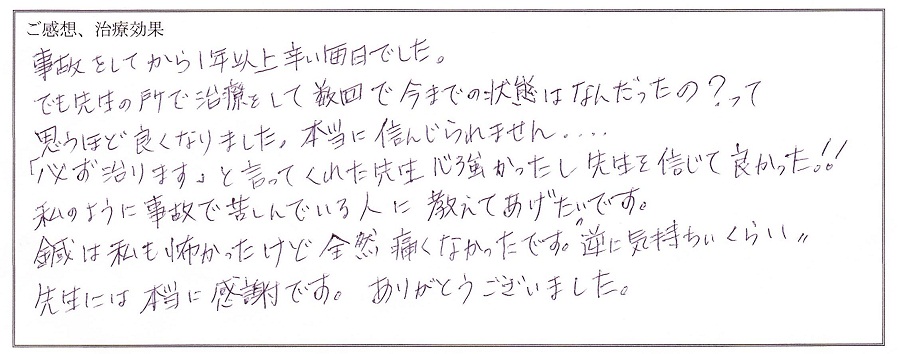 ご感想、治療効果
事故をしてから1年以上辛い毎日でした。
でも先生の所で治療をして数回で今までの状態はなんだったの?って
思うほど良くなりました。本当に信んじられません....
「必ず治ります」と言ってくれた先生 心強かったし 先生を信じて良かった!!
私のように事故で苦しんでいる人に 教えてあげたいです。
鍼は私も怖かったけど全然痛くなかったです。"逆に気持ちいくらい"
先生には本当に感謝です。ありがとうございました。